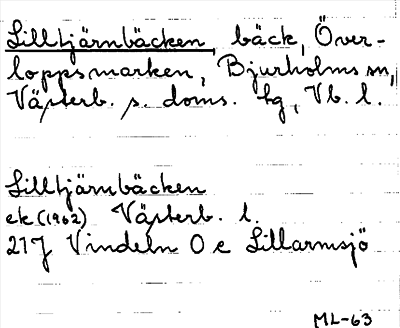 Lilltjärnbäcken, bäck, Över-
loppsmarken, Bjurholms sn,
Västerb. s. doms. hg, Vb. l.
Lilltjärnbäcken
ek (1962) Västerb. l.
21J Vindeln O e Lillarmsjö
ML-63